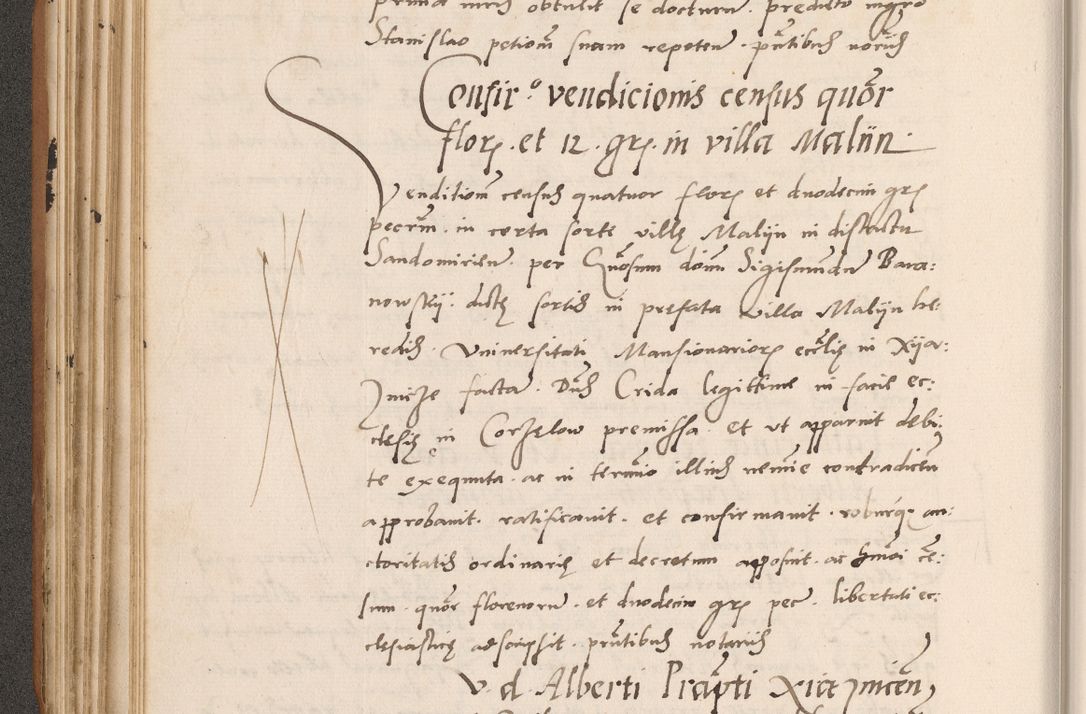 prima iuris obtulit se docturum. predicto magro
Stanislao petiom suam repoten. pntibus notariis
Confir.º vendicionis census quōr
flor. et 12. gr. in villa Malijn
Venditiom census quatuor flor et duodecim gr
pecrm. in certa sorte villę Malijn in districtu
Sandomirien. per Gnosum dom Sigismundu Bara:
nowskij. dictę sortis in prefata villa Malijn he:
redis. Vniuersitati Mansionarior ecclię in Xija:
Jmicze facta. Dus Crida legittime in facie ec:
clesię in Corzęlow premissa. et ut apparuit debi:
te exequuta. ac in termio illius nemie contradicen
approbauit. ratificauit. et confirmauit. roburq. au:
ctoritatis ordinarię et decretum apposuit. ac hmoi ce:
sum. quōr florenorum. et duodecim gr pec. libertati ec:
clesiasticę adscripsit. pntibus notariis
v. d. Alberti Prapti Xiażnicen